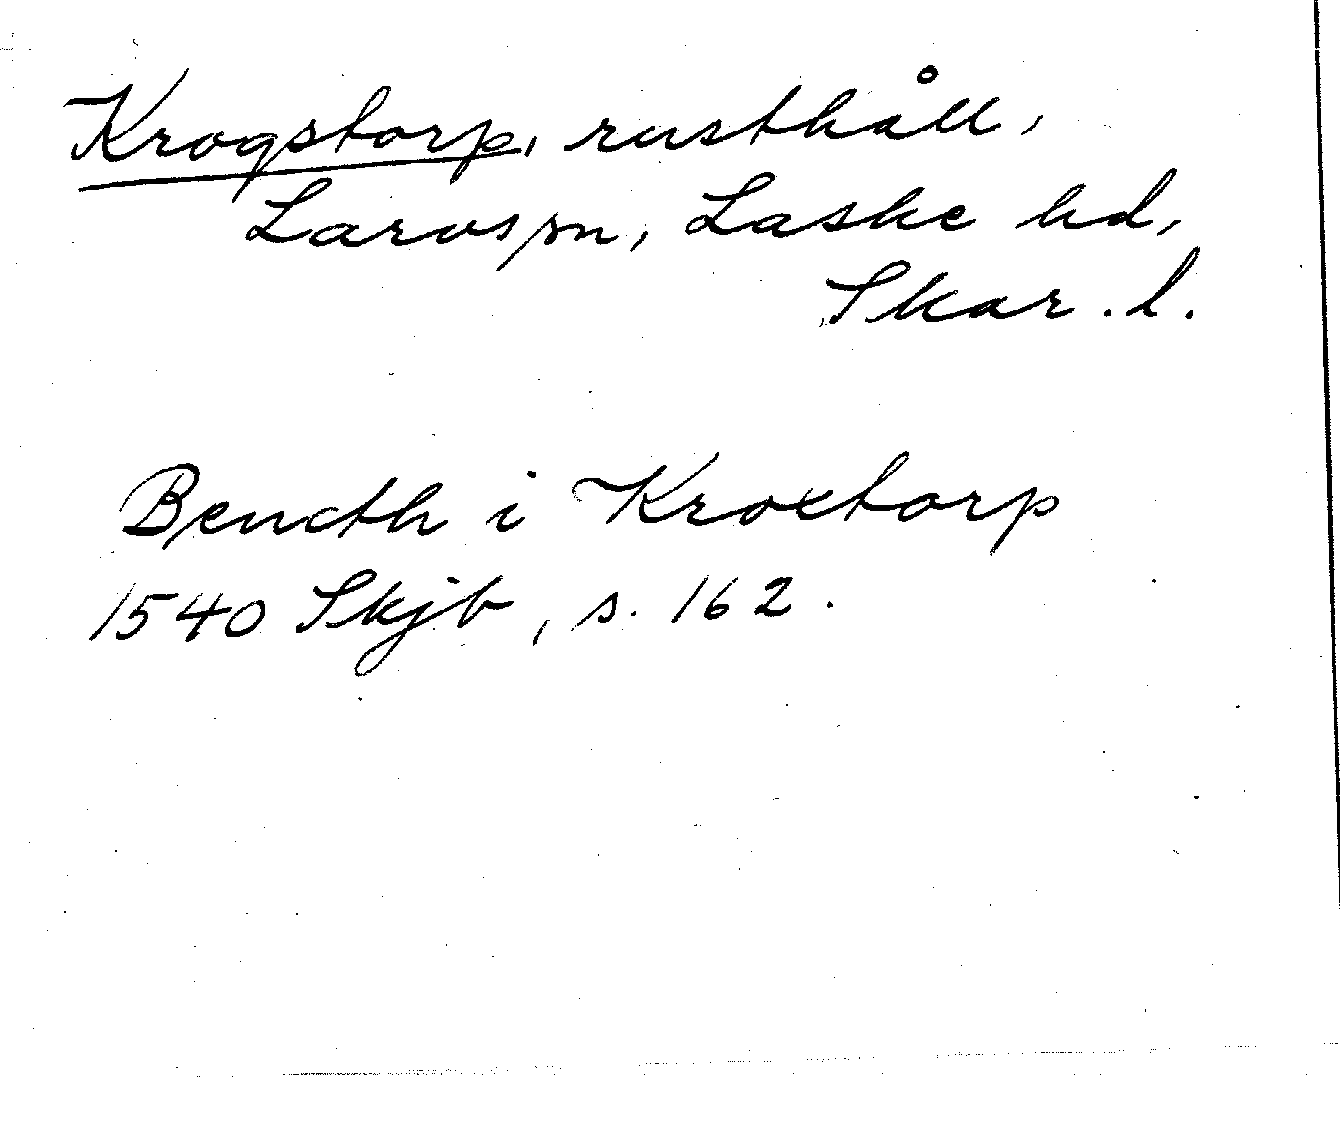 Krogstorp, rusthåll,
Larvs sn, Laske hd,
Skar. l.
Bencth i Kroxtorp
1540 Skjb, s. 162.